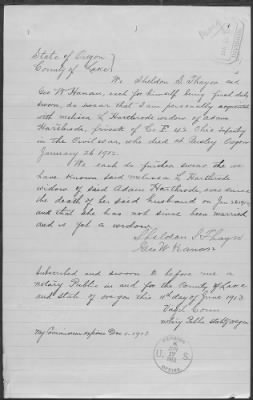 State of Oregon
County of Lake
We Sheldon I. Thayer and
Geo W Hanan, each for himself being first duly
sworn, do swear that I am personally acquainted
with Melissa L Hartbrode widow of Adam
Hartbrode, private of Co F 42 Ohio Infantry
in the Civil war, who died at Paisley Oregon
January 26 1912.
We each do further swear we
have known said Melissa L Hartbrode
widow of said Adam Hartbrode, ever since
the death of her said husband on Jan 26 1912
and that she has not since been married
and is yet a widow.
Sheldon I. Thayer
Geo W Hanan
Subscribed and sworn to before me a
notary Public in and for the County of Lake
and state of oregon this 11th day of June 1913
Notary Public state of oregon
My Commission expires Dec 5-1915
U. S.
OFFICE